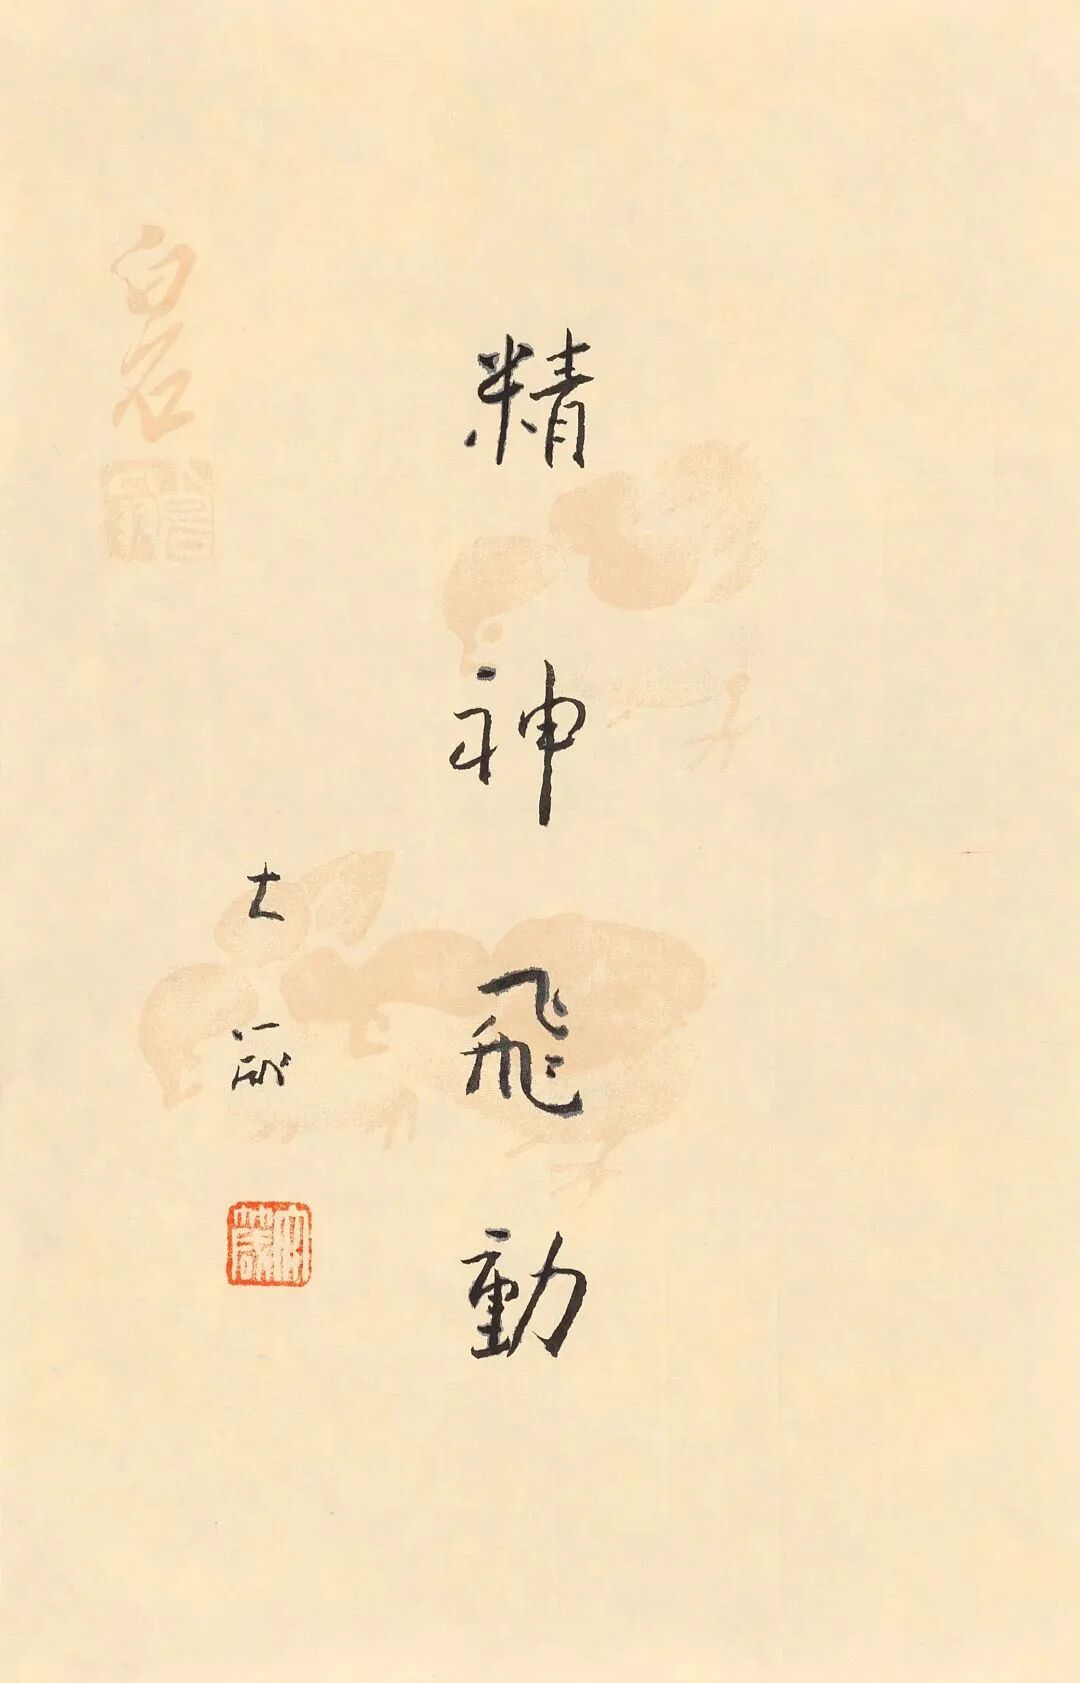 精神飛動
大箴
白石